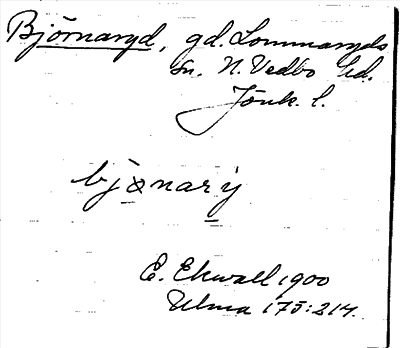 Björnaryd, gd. Lommaryds
sn. N. Vedbo hd.
Jönk. l.
bjɷnarẏ
E. Ekwall 1900
Ulma 175:214.